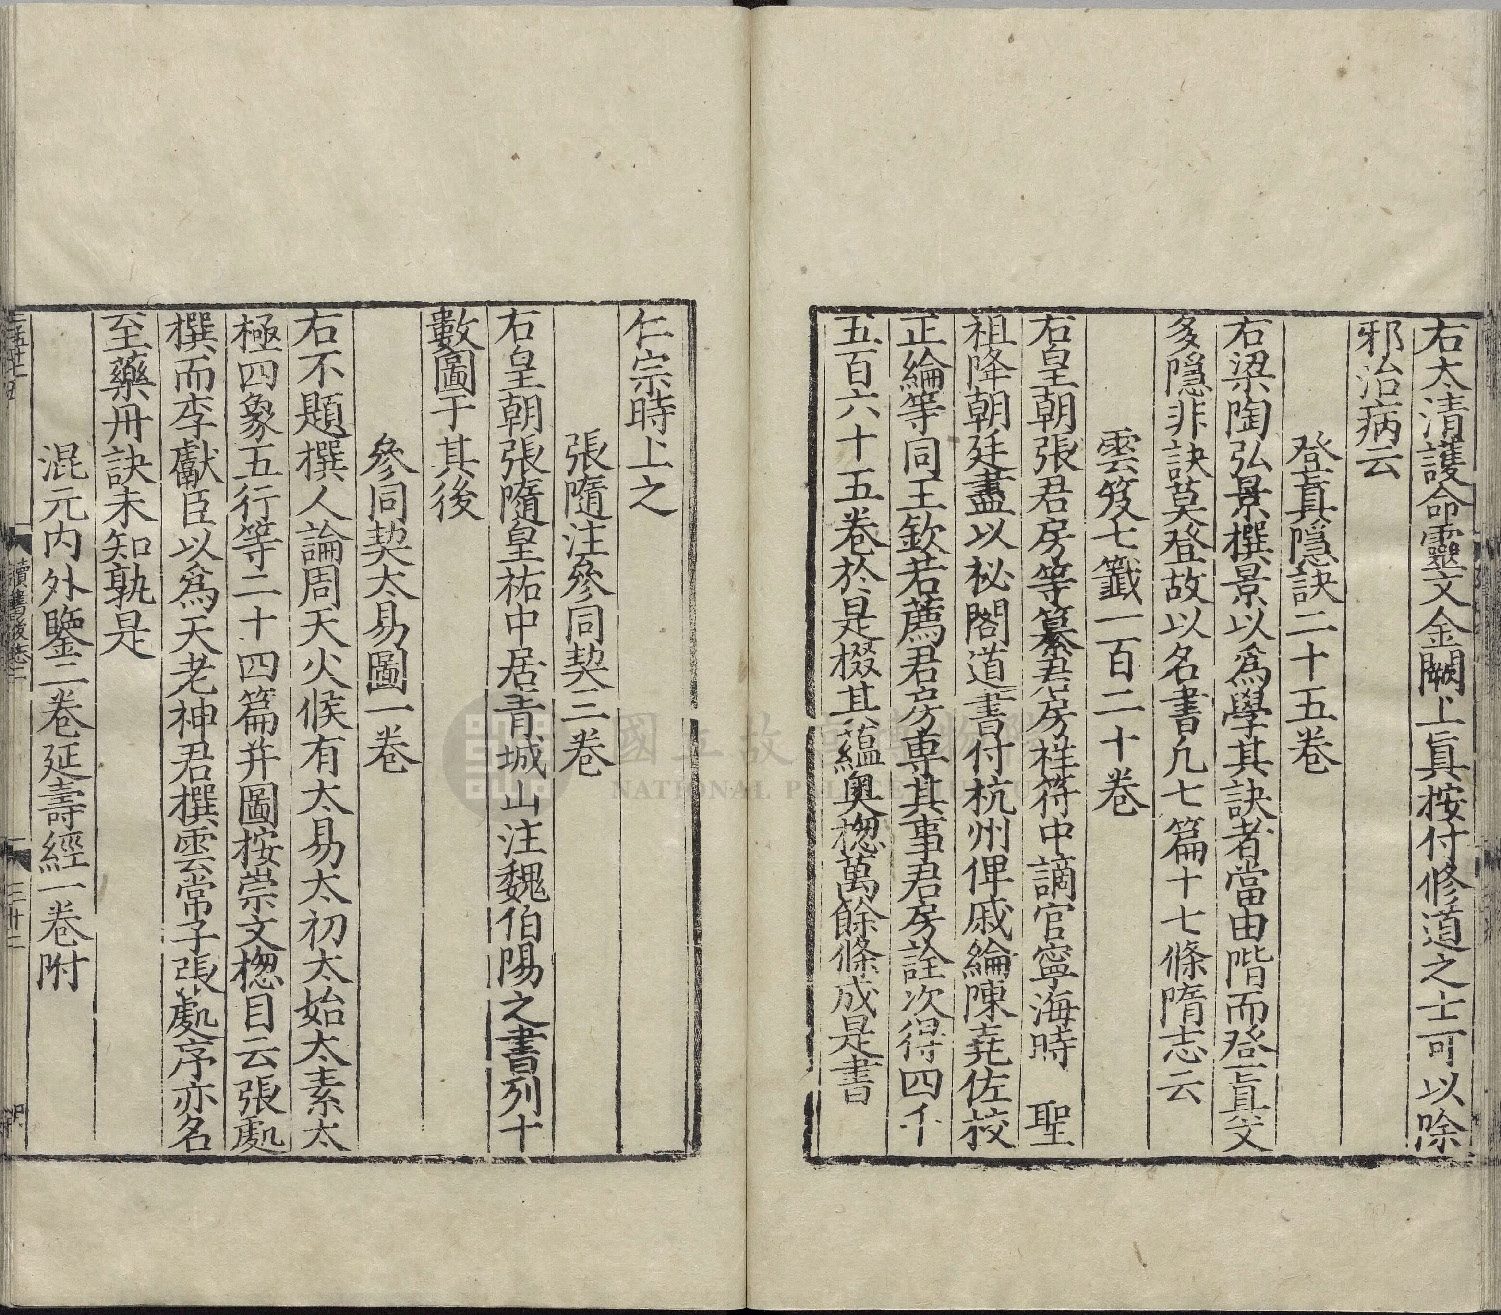 右太清護命靈文金闕上眞按付修道之士可以除
邪治病云
登眞隱訣二十五卷
右梁陶弘景撰景以爲學其訣者當由階而登眞文
多隱非訣莫登故以名書凡七篇十七條隋志云
雲笈七籤一百二十卷
右皇朝張君房等纂君房祥符中謫官寧海時　聖
祖降朝廷盡以祕閣道書付杭州俾戚綸陳堯佐校
正綸等同王欽若薦君房專其事君房詮次得四千
五百六十五卷於是掇其蘊奧揔萬餘條成是書
仁宗時上之
張隨注參同契三卷
右皇朝張隨皇祐中居青城山注魏伯陽之書列十
數圖于其後
參同契太易圖一卷
右不題撰人論周天火候有太易太初太始太素太
極四象五行等二十四篇并圖按崇文揔目云張處
撰而李獻臣以爲天老神君撰雲常子張處序亦名
至藥丹訣未知孰是
混元內外鑒二卷延壽經一卷附
讀書後卷二
三廿二
國立故宮博物院
NATIONAL PALACE MUSEUM